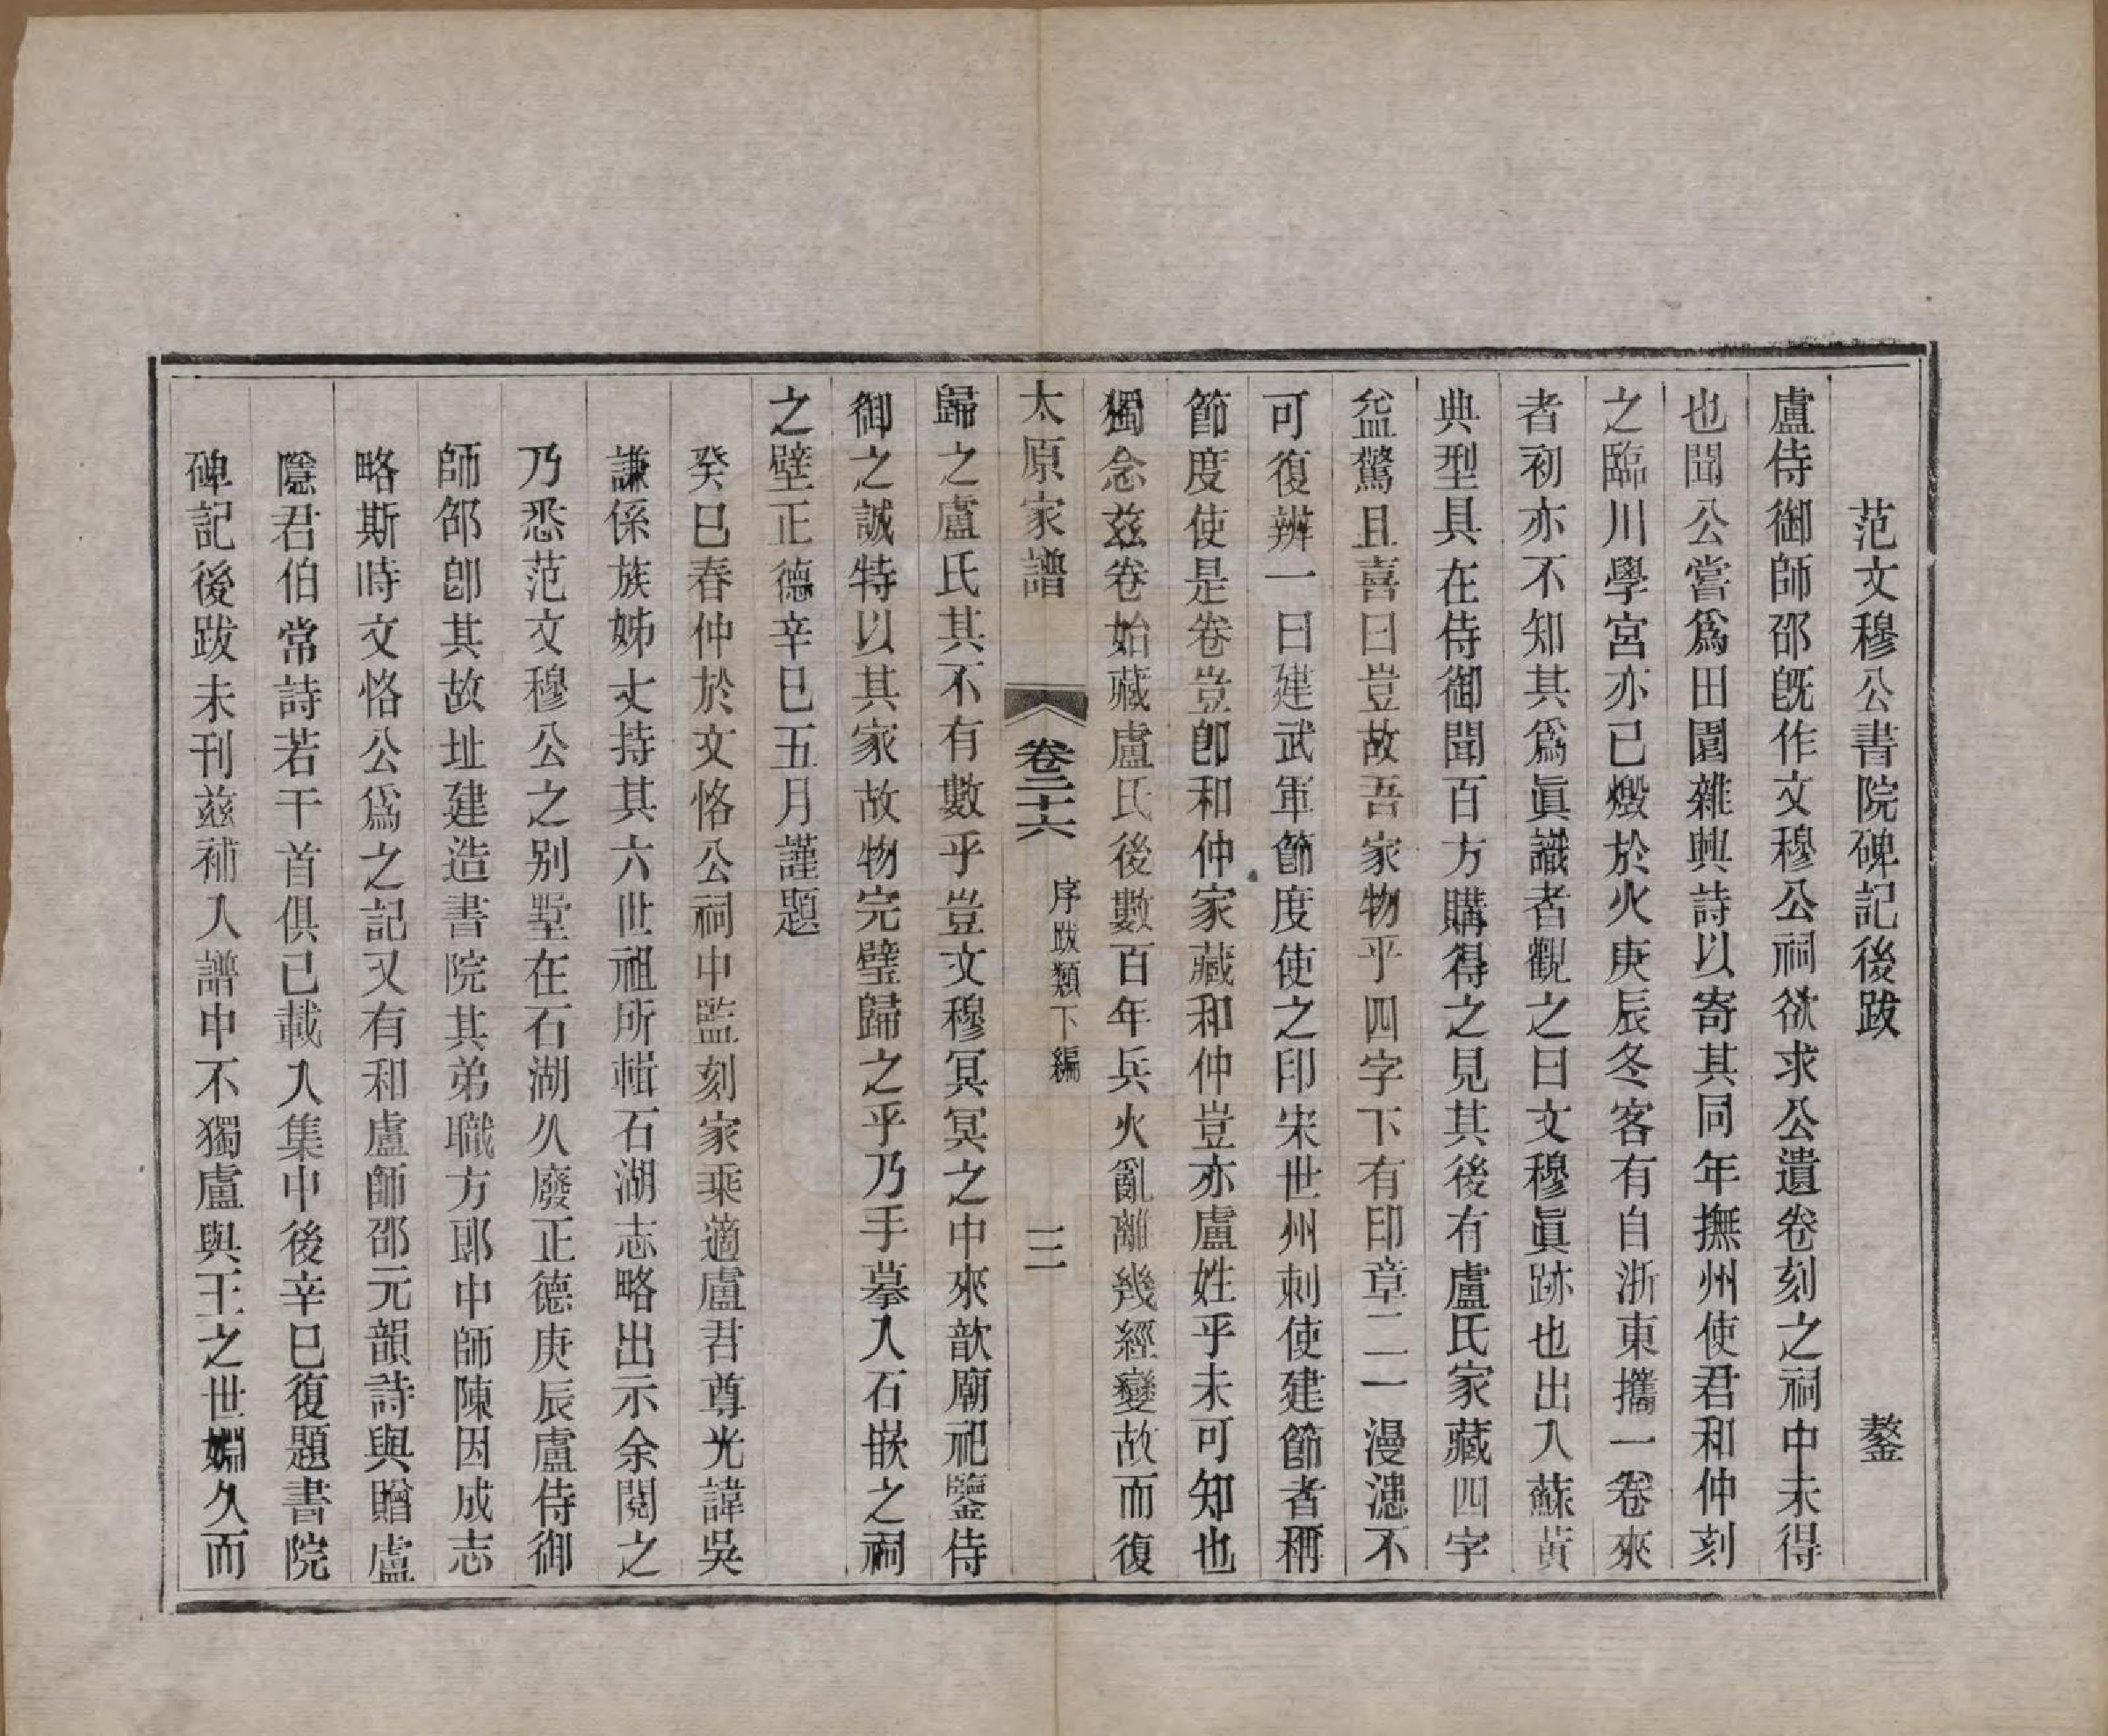 范文穆公書院碑記後跋　鏊
盧侍御師邵旣作文穆公祠欲求公遺卷刻之祠中未得
也聞公嘗爲田園雜興詩以寄其同年撫州使君和仲刻
之臨川學宮亦已燬於火庚辰冬客有自浙東攜一卷來
者初亦不知其爲眞識者觀之曰文穆眞跡也出入蘇黃
典型具在侍御聞百方購得之見其後有盧氏家藏四字
益驚且喜曰豈故吾家物乎四字下有印章二一漫漶不
可復辨一曰建武軍節度使之印宋世州刺使建節者稱
節度使是卷豈卽和仲家藏和仲豈亦盧姓乎未可知也
獨念兹卷始藏盧氏後數百年兵火亂離幾經變故而復
太原家譜　卷二十六　序跋類下編　三
歸之盧氏其不有數乎豈文穆冥冥之中來歆廟祀鑒侍
御之誠特以其家故物完璧歸之乎乃手摹入石嵌之祠
之壁正德辛巳五月謹題
癸巳春仲於文恪公祠中監刻家乘適盧君尊光諱吳
謙係族姊丈持其六世祖所輯石湖志略出示余閱之
乃悉范文穆公之别墅在石湖久廢正德庚辰盧侍御
師邵卽其故址建造書院其弟職方郎中師陳因成志
略斯時文恪公爲之記又有和盧師邵元韻詩與贈盧
隱君伯常詩若干首俱已載入集中後辛巳復題書院
碑記後跋未刊兹補入譜中不獨盧與王之世婣久而